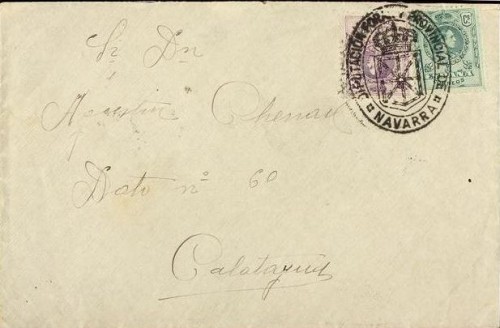 Sr Dn
Agustin
Dato nº 60
Calatayud
DIPUTACION FORAL Y PROVINCIAL DE
NAVARRA